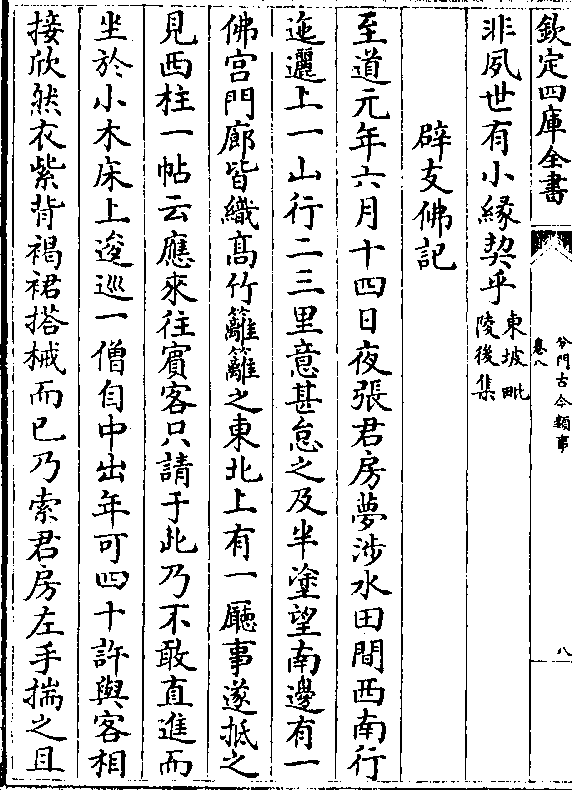 欽定四庫全書
分門古今類事
卷八
八
非夙世有小緣契乎東坡毗
陵後集
辟支佛記
至道元年六月十四日夜張君房夢涉水田間西南行
迤邐上一山行二三里意甚怠之及半塗望南邊有一
佛宮門廊皆織髙竹籬籬之東北上有一廳事遂抵之
見西柱一帖云應來往賔客只請于此乃不敢直進而
坐於小木床上逡巡一僧自中出年可四十許與客相
接欣然衣紫背褐裙搭袜而已乃索君房左手揣之且